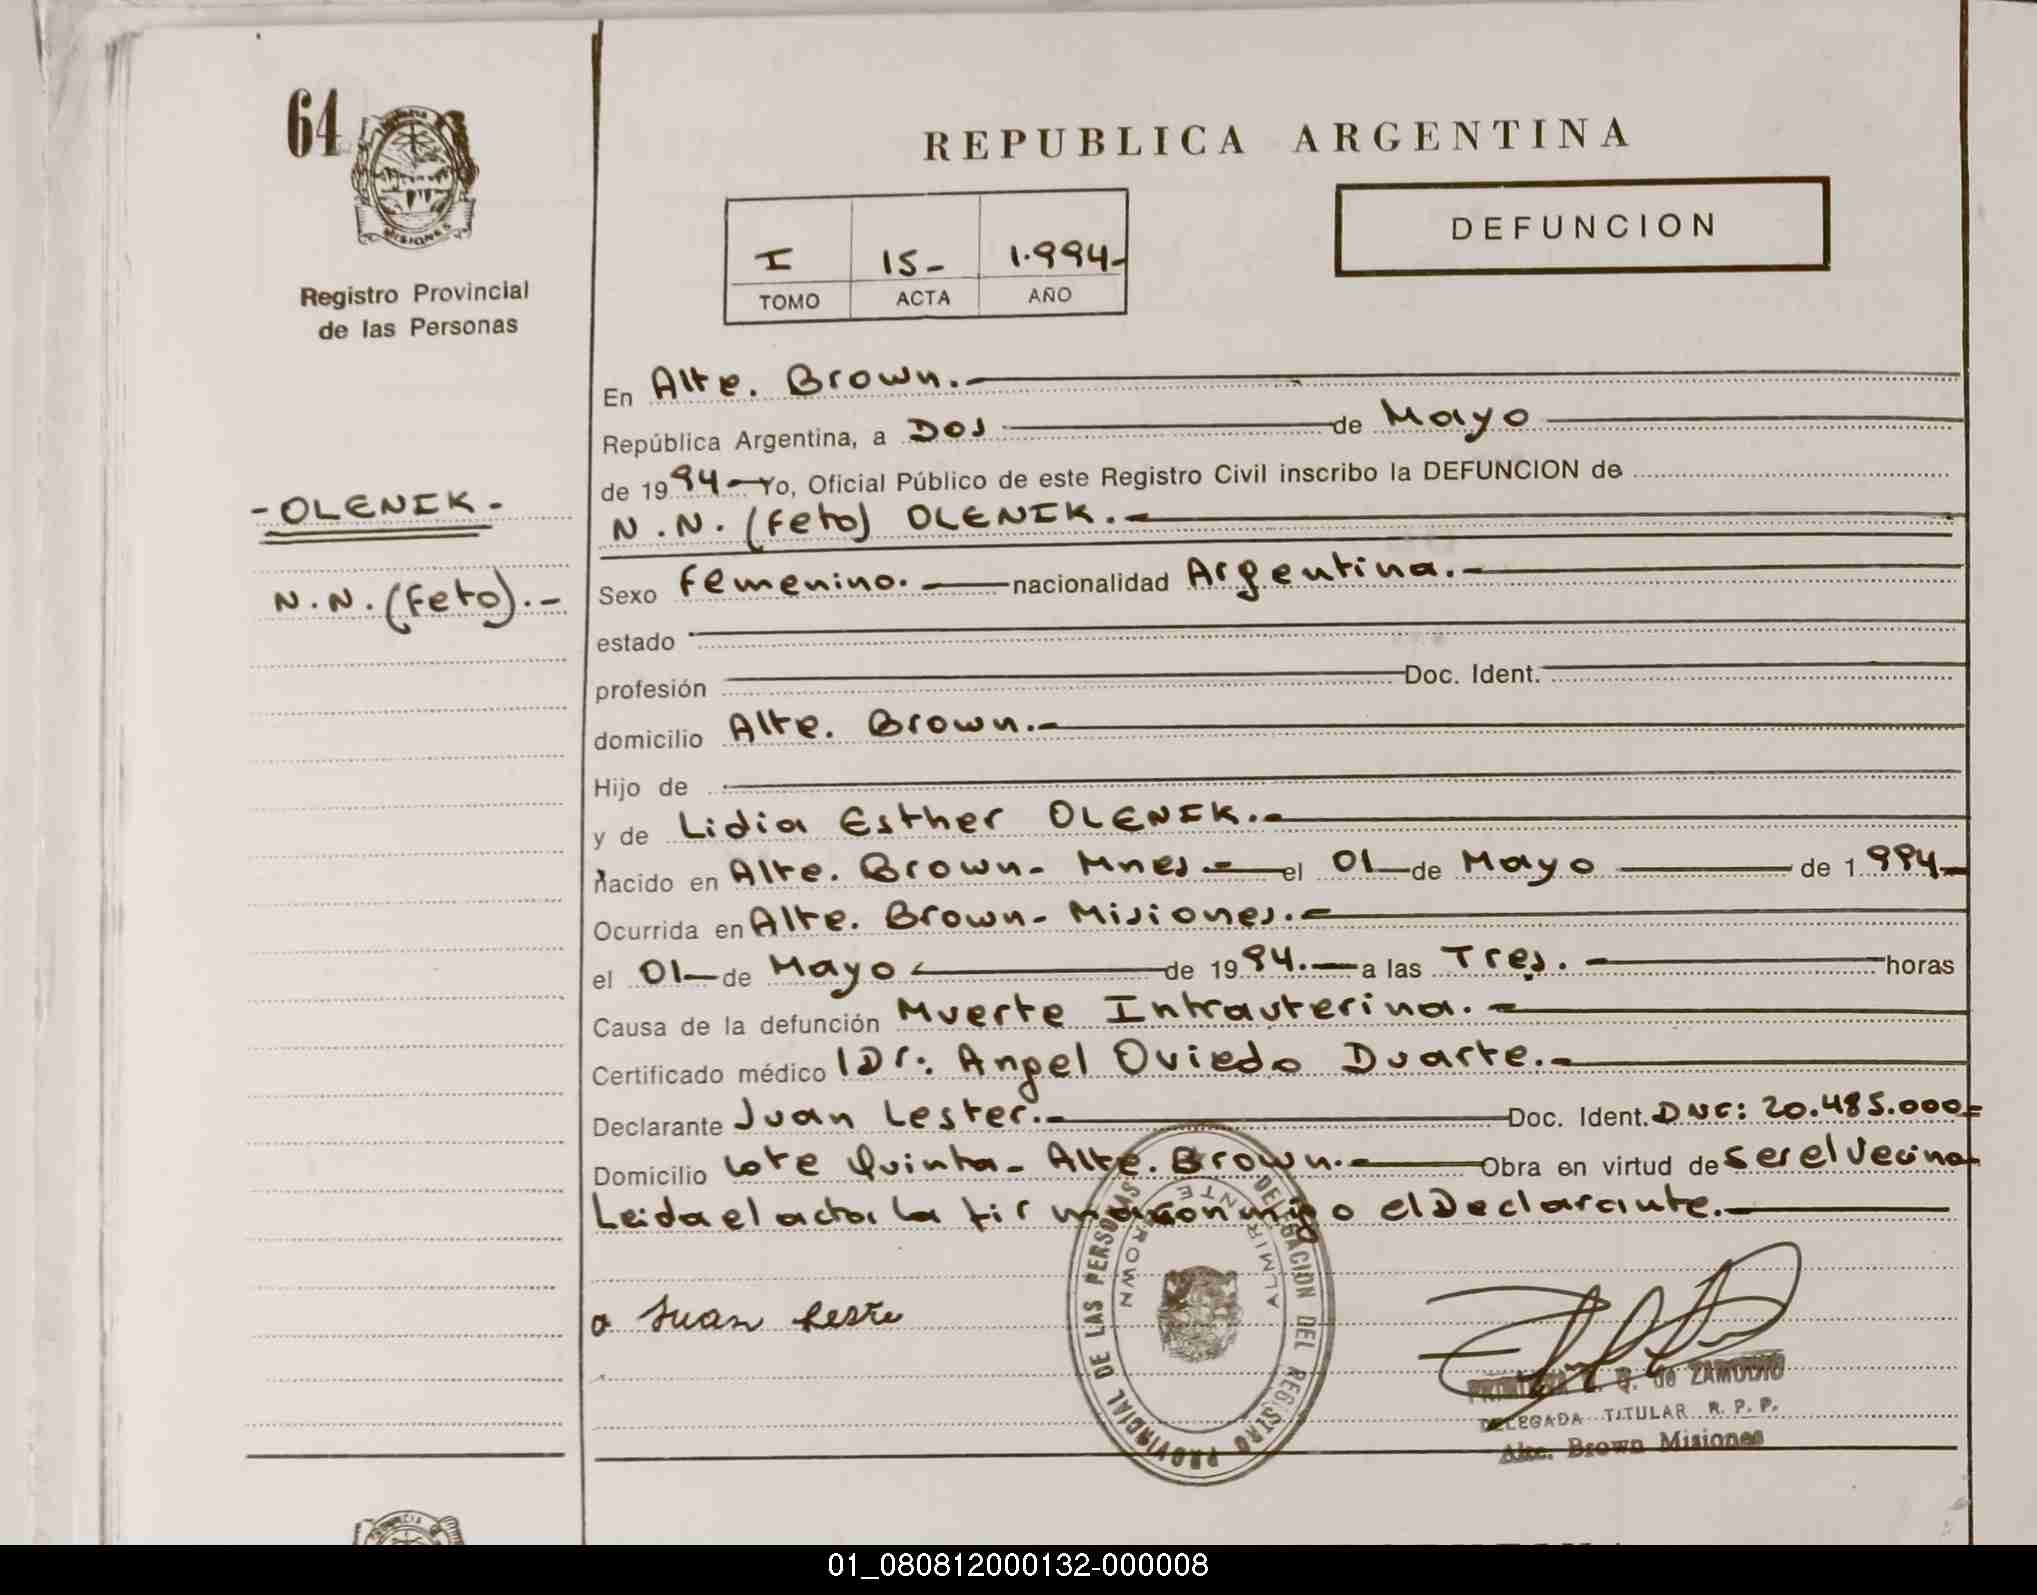 64
MISIONES
Registro Provincial
de las Personas
- OLENIK -
N.N. (Feto).-
REPUBLICA ARGENTINA
DEFUNCION
I 15- 1.994-
TOMO ACTA AÑO
En Alte. Brown.-
República Argentina, a Dos de Mayo
de 1994- Yo, Oficial Público de este Registro Civil inscribo la DEFUNCION de
N.N. (Feto) OLENIK.-
Sexo Femenino.- nacionalidad Argentina.-
estado
profesión Doc. Ident.
domicilio Alte. Brown.-
Hijo de
y de Lidia Esther OLENIK.-
nacido en Alte. Brown- Mnes- el 01- de Mayo de 1.994-
Ocurrida en Alte. Brown- Misiones.-
el 01- de Mayo de 1994.- a las Tres.- horas
Causa de la defunción Muerte Intrauterina.-
Certificado médico Dr: Angel Oviedo Duarte.-
Declarante Juan Lester.- Doc. Ident. DNI: 20.485.000-
Domicilio Lote Quinta- Alte. Brown.- Obra en virtud de ser el vecino-
Leida el acta, la firma conmigo el Declarante.-
Juan Leste
DELEGACION DEL REGISTRO PROVINCIAL DE LAS PERSONAS
ALMIRANTE BROWN
Q. de ZAMUDIO
DELEGADA TITULAR R. P. P.
Alte. Brown Misiones
01_080812000132-000008